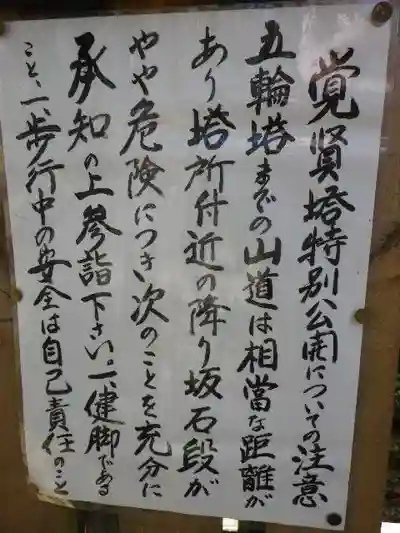 覚賢塔特別公開についての注意
五輪塔までの山道は相當な距離が
あり塔所付近の降り坂石段が
やや危険につき次のことを充分に
承知の上参詣下さい。一、健脚である
こと、一、歩行中の安全は自己責任のこと